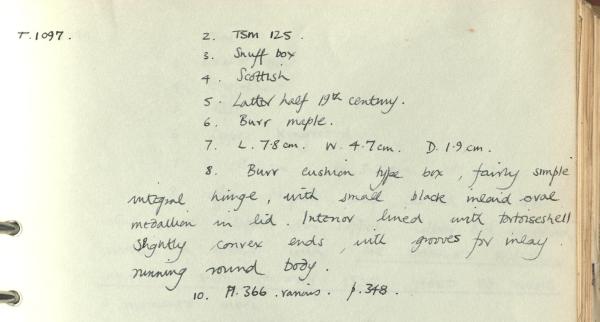 T.1097. 2. TSM 125.
3. Snuff box
4. Scottish
5. Latter half 19th century.
6. Burr maple.
7. L. 7.8cm. W. 4.7cm. D. 1.9cm.
8. Burr cushion type box, fairly simple
integral hinge, with small black inlaid oval
medallion in lid. Interior lined with tortoiseshell
Slightly convex ends, with grooves for inlay
running round body.
10. Pl. 366. p. 348.